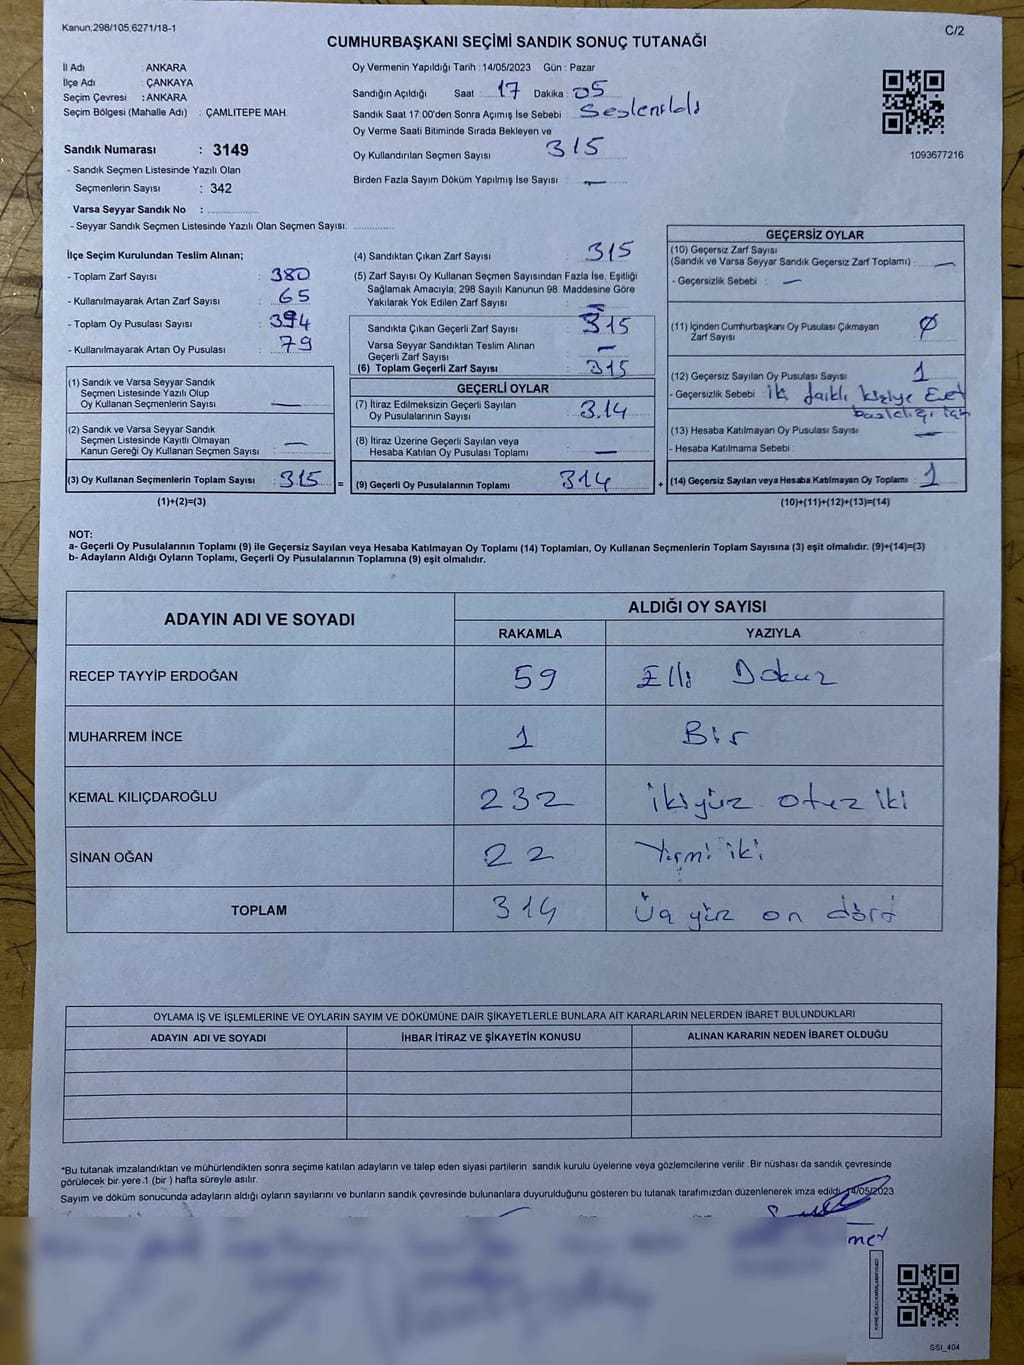 Kanun.298/105.6271/18-1
C/2
CUMHURBAŞKANI SEÇİMİ SANDIK SONUÇ TUTANAĞI
İl Adı : ANKARA
İlçe Adı : ÇANKAYA
Seçim Çevresi : ANKARA
Seçim Bölgesi (Mahalle Adı) : ÇAMLITEPE MAH.
Sandık Numarası : 3149
- Sandık Seçmen Listesinde Yazılı Olan
Seçmenlerin Sayısı : 342
Varsa Seyyar Sandık No :
- Seyyar Sandık Seçmen Listesinde Yazılı Olan Seçmen Sayısı:
Oy Vermenin Yapıldığı Tarih : 14/05/2023 Gün : Pazar
Sandığın Açıldığı Saat : 17 Dakika : 05
Sandık Saat 17:00'den Sonra Açımış İse Sebebi :
Oy Verme Saati Bitiminde Sırada Bekleyen ve
Oy Kullandırılan Seçmen Sayısı : 315
Birden Fazla Sayım Döküm Yapılmış İse Sayısı : —
1093677216
İlçe Seçim Kurulundan Teslim Alınan;
- Toplam Zarf Sayısı : 380
- Kullanılmayarak Artan Zarf Sayısı : 65
- Toplam Oy Pusulası Sayısı : 394
- Kullanılmayarak Artan Oy Pusulası : 79
(1) Sandık ve Varsa Seyyar Sandık
Seçmen Listesinde Yazılı Olup
Oy Kullanan Seçmenlerin Sayısı : —
(2) Sandık ve Varsa Seyyar Sandık
Seçmen Listesinde Kayıtlı Olmayan
Kanun Gereği Oy Kullanan Seçmen Sayısı : —
(3) Oy Kullanan Seçmenlerin Toplam Sayısı : 315
(1)+(2)=(3)
(4) Sandıktan Çıkan Zarf Sayısı : 315
(5) Zarf Sayısı Oy Kullanan Seçmen Sayısından Fazla İse, Eşitliği
Sağlamak Amacıyla; 298 Sayılı Kanunun 98. Maddesine Göre
Yakılarak Yok Edilen Zarf Sayısı : —
Sandıkta Çıkan Geçerli Zarf Sayısı : 315
Varsa Seyyar Sandıktan Teslim Alınan
Geçerli Zarf Sayısı : —
(6) Toplam Geçerli Zarf Sayısı : 315
GEÇERLİ OYLAR
(7) İtiraz Edilmeksizin Geçerli Sayılan
Oy Pusulalarının Sayısı : 314
(8) İtiraz Üzerine Geçerli Sayılan veya
Hesaba Katılan Oy Pusulası Toplamı : —
= (9) Geçerli Oy Pusulalarının Toplamı : 314 +
GEÇERSİZ OYLAR
(10) Geçersiz Zarf Sayısı
(Sandık ve Varsa Seyyar Sandık Geçersiz Zarf Toplamı) : —
- Geçersizlik Sebebi : —
(11) İçinden Cumhurbaşkanı Oy Pusulası Çıkmayan
Zarf Sayısı : Ø
(12) Geçersiz Sayılan Oy Pusulası Sayısı : 1
- Geçersizlik Sebebi : iki faıklı kişiye Evet
basıldığı için
(13) Hesaba Katılmayan Oy Pusulası Sayısı : —
- Hesaba Katılmama Sebebi :
(14) Geçersiz Sayılan veya Hesaba Katılmayan Oy Toplamı : 1
(10)+(11)+(12)+(13)=(14)
NOT:
a- Geçerli Oy Pusulalarının Toplamı (9) ile Geçersiz Sayılan veya Hesaba Katılmayan Oy Toplamı (14) Toplamları, Oy Kullanan Seçmenlerin Toplam Sayısına (3) eşit olmalıdır. (9)+(14)=(3)
b- Adayların Aldığı Oyların Toplamı, Geçerli Oy Pusulalarının Toplamına (9) eşit olmalıdır.
ADAYIN ADI VE SOYADI
ALDIĞI OY SAYISI
RAKAMLA YAZIYLA
RECEP TAYYİP ERDOĞAN 59 Elli Dokuz
MUHARREM İNCE 1 Bir
KEMAL KILIÇDAROĞLU 232 ikiyüz otuz iki
SİNAN OĞAN 22 Yirmi iki
TOPLAM 314 Üç yüz on dört
OYLAMA İŞ VE İŞLEMLERİNE VE OYLARIN SAYIM VE DÖKÜMÜNE DAİR ŞİKAYETLERLE BUNLARA AİT KARARLARIN NELERDEN İBARET BULUNDUKLARI
ADAYIN ADI VE SOYADI İHBAR İTİRAZ VE ŞİKAYETİN KONUSU ALINAN KARARIN NEDEN İBARET OLDUĞU
*Bu tutanak imzalandıktan ve mühürlendikten sonra seçime katılan adayların ve talep eden siyasi partilerin sandık kurulu üyelerine veya gözlemcilerine verilir. Bir nüshası da sandık çevresinde
görülecek bir yere 1 (bir) hafta süreyle asılır.
Sayım ve döküm sonucunda adayların aldığı oyların sayılarını ve bunların sandık çevresinde bulunanlara duyurulduğunu gösteren bu tutanak tarafımızdan düzenlenerek imza edildi. 14/05/2023
SSI_404